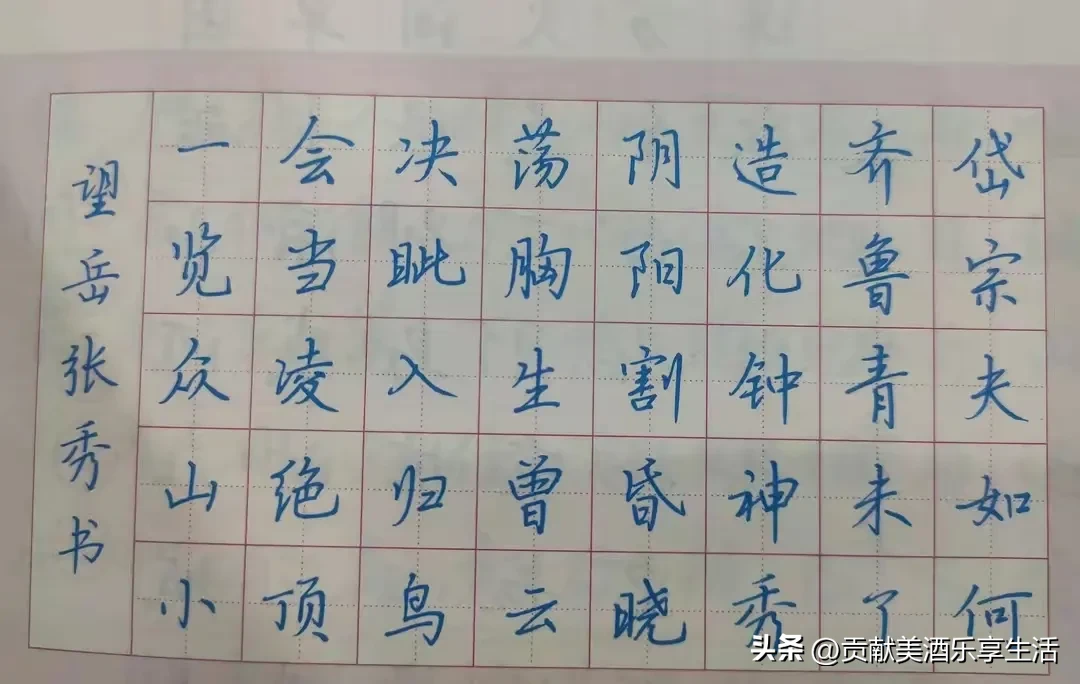 岱宗夫如何
齐鲁青未了
造化钟神秀
阴阳割昏晓
荡胸生曾云
决眦入归鸟
会当凌绝顶
一览众山小
望岳张秀书
头条 @贡献美酒乐享生活